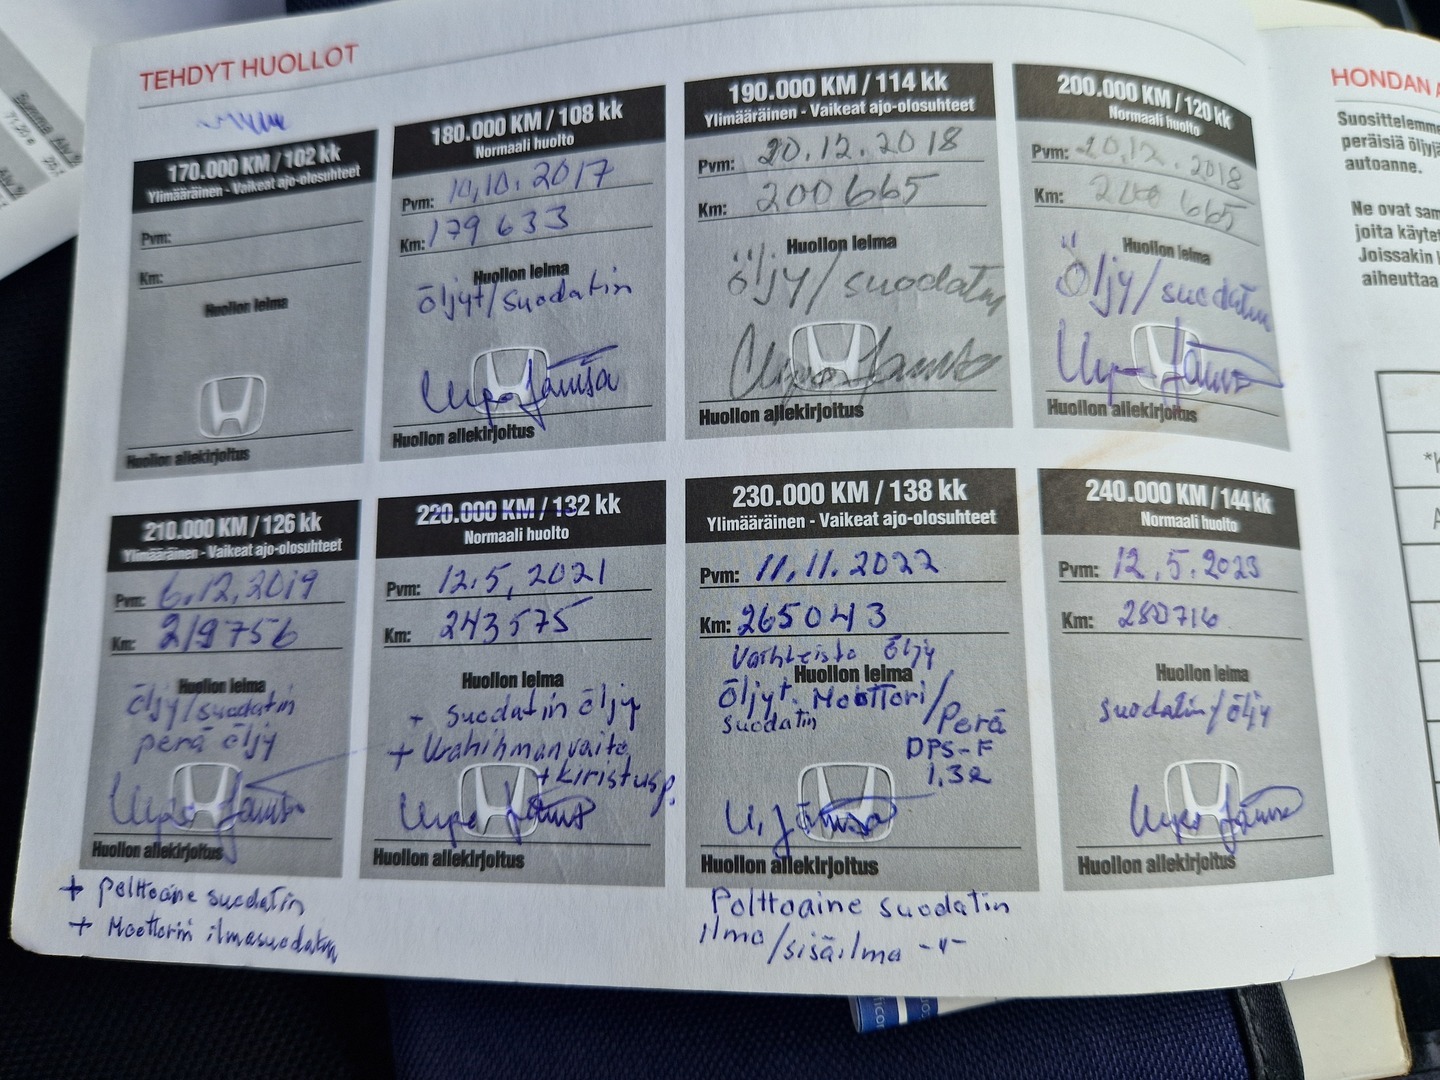 TEHDYT HUOLLOT
170.000 KM / 102 kk
Ylimääräinen - Vaikeat ajo-olosuhteet
Pvm:
Km:
Huollon leima
Huollon allekirjoitus
180.000 KM / 108 kk
Normaali huolto
Pvm: 10.10.2017
Km: 179 633
Huollon leima
öljyt/suodatin
Huollon allekirjoitus
190.000 KM / 114 kk
Ylimääräinen - Vaikeat ajo-olosuhteet
Pvm: 20.12.2018
Km: 200665
Huollon leima
öljy/suodatin
Huollon allekirjoitus
200.000 KM / 120 kk
Normaali huolto
Pvm: 20.12.2018
Km: 200 665
Huollon leima
Öljy/suodatin
Huollon allekirjoitus
210.000 KM / 126 kk
Ylimääräinen - Vaikeat ajo-olosuhteet
Pvm: 6.12.2019
Km: 219756
Huollon leima
öljy/suodatin
perä öljy
Huollon allekirjoitus
+ polttoaine suodatin
+ Moottorin ilmasuodatin
220.000 KM / 132 kk
Normaali huolto
Pvm: 12.5.2021
Km: 243575
Huollon leima
+ suodatin öljy
+ Urahihnan vaihto
+ kiristusp.
Huollon allekirjoitus
230.000 KM / 138 kk
Ylimääräinen - Vaikeat ajo-olosuhteet
Pvm: 11.11.2022
Km: 265043
Vaihteisto öljy
Huollon leima
Öljyt Moottori/Perä
suodatin
DPS-F
1,32
U. Jämsä
Huollon allekirjoitus
Polttoaine suodatin
ilma/sisäilma -"-
240.000 KM / 144 kk
Normaali huolto
Pvm: 12.5.2023
Km: 280716
Huollon leima
suodatin/öljy
Huollon allekirjoitus
HONDAN
Suosittelemme
peräisiä
autoanne.
Ne ovat
joita
Joissakin
aiheuttaa